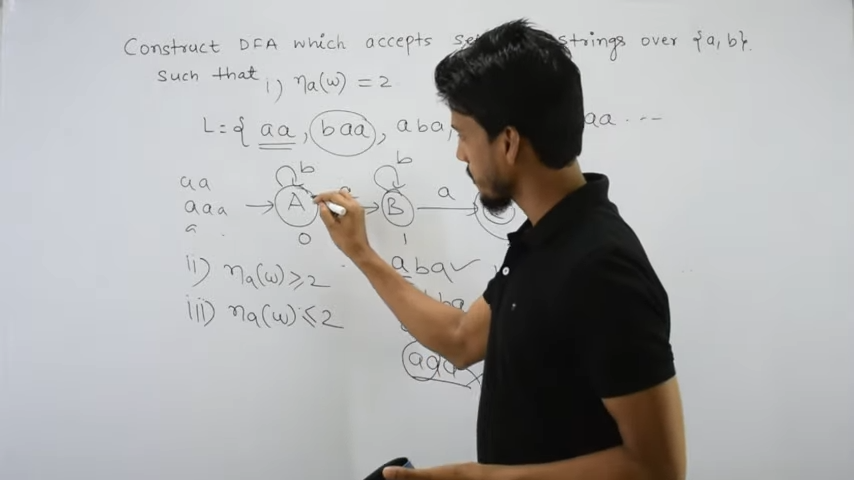 Construct DFA which accepts strings over {a, b}.
such that i) ηa(w) = 2
L = { aa, baa, aba, aa ...
aa
aaa
a
b b
A a B a
0 1
ii) ηa(w) ≥ 2 aba ✓
iii) ηa(w) ≤ 2 ba
aaa